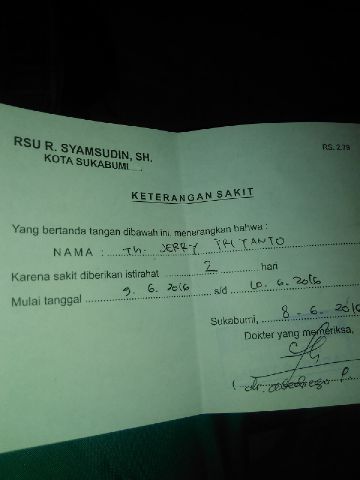 RSU R. SYAMSUDIN, SH.
KOTA SUKABUMI
RS. 2.79
KETERANGAN SAKIT
Yang bertanda tangan dibawah ini, menerangkan bahwa :
NAMA : Th. JERRY TRITANTO
Karena sakit diberikan istirahat 2 hari
Mulai tanggal 9.6.2016 s/d 10.6.2016
Sukabumi, 8-6-2016
Dokter yang memeriksa,
( dr.